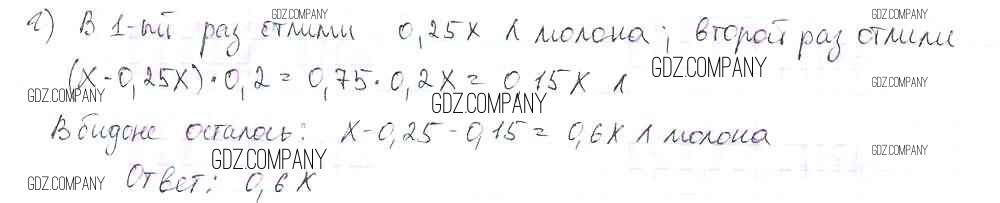 2) В 1-ый раз отлили 0,25x л молока; второй раз отлили
(x-0,25x)·0,2=0,75·0,2x=0,15x л
В бидоне осталось: x-0,25-0,15=0,6x л молока
Ответ: 0,6x
GDZ.COMPANY
GDZ.COMPANY
GDZ.COMPANY
GDZ.COMPANY
GDZ.COMPANY
GDZ.COMPANY
GDZ.COMPANY
GDZ.COMPANY
GDZ.COMPANY
GDZ.COMPANY